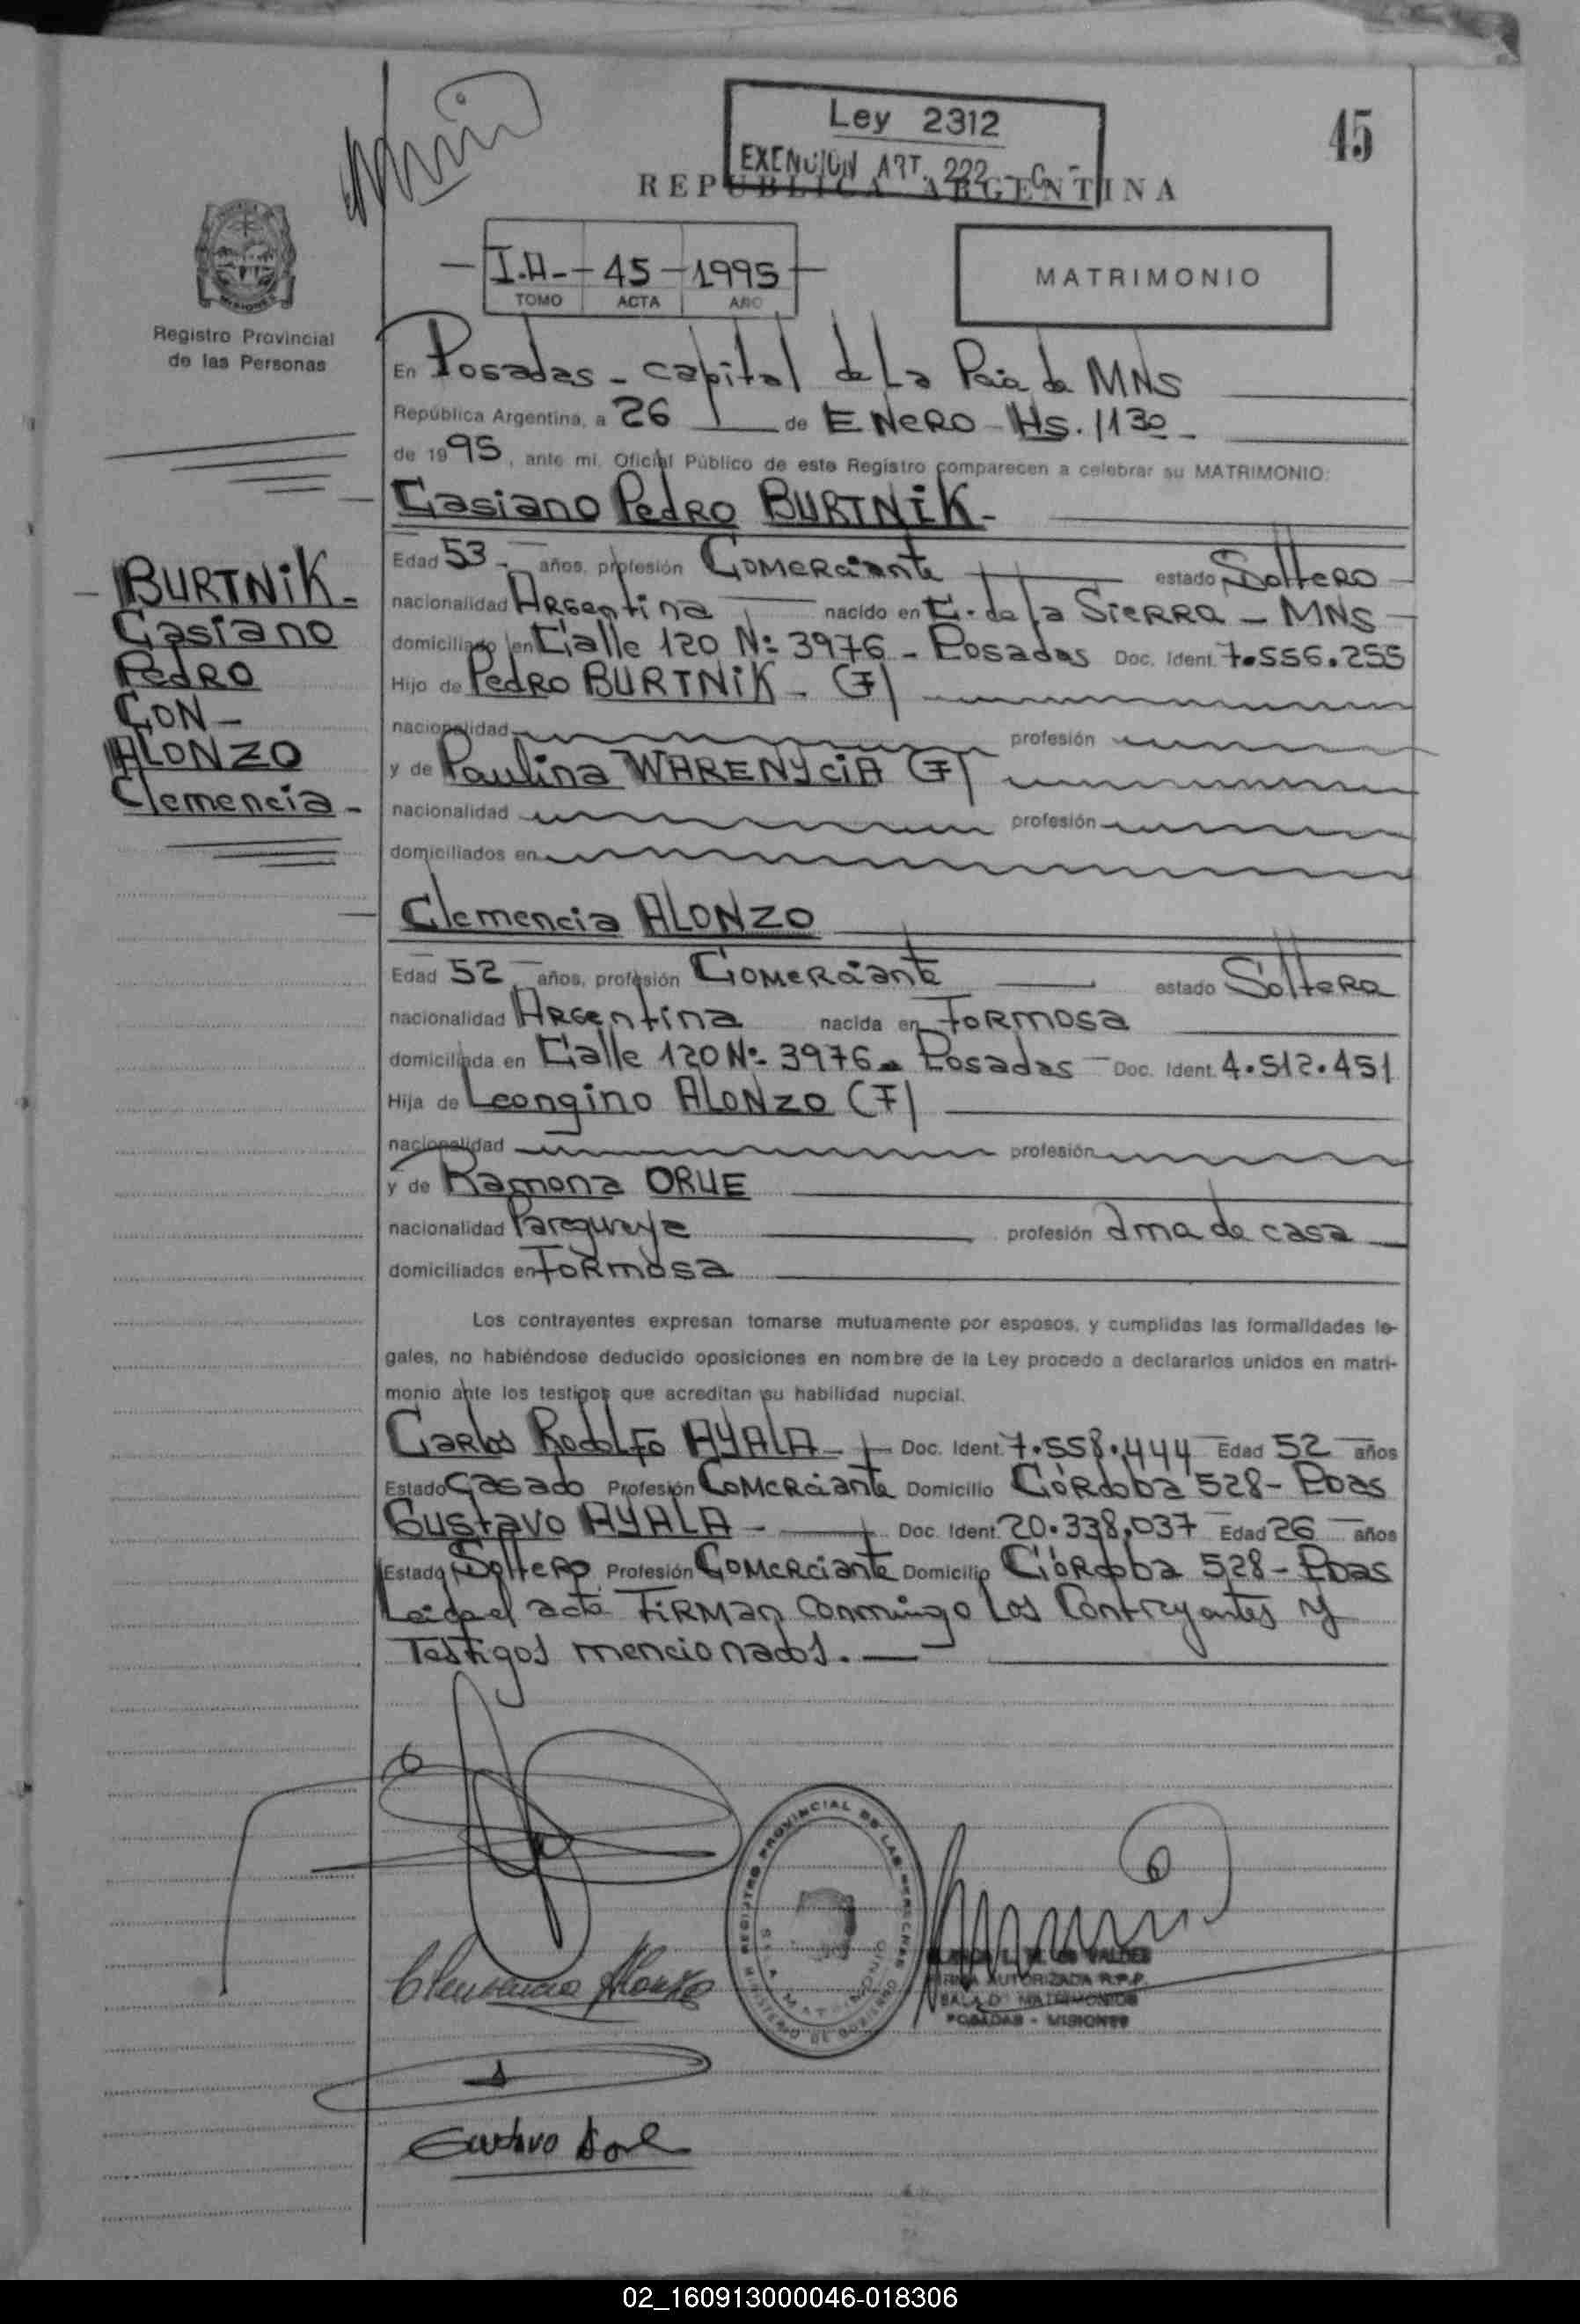 Ley 2312
EXENCION ART. 222 - C -
45
REPUBLICA ARGENTINA
I.A.- - 45 - 1995
TOMO ACTA AÑO
MATRIMONIO
MISIONES
Registro Provincial
de las Personas
En Posadas - capital de La Pcia de MNS
República Argentina, a 26 de ENERO - Hs. 1130 -
de 1995, ante mí, Oficial Público de este Registro comparecen a celebrar su MATRIMONIO:
Casiano Pedro BURTNIK -
Edad 53 - años, profesión Comerciante estado Soltero
nacionalidad Argentina nacido en C. de la Sierra - MNS
domiciliado en Calle 120 Nº 3976 - Posadas Doc. Ident. 7.556.255
Hijo de Pedro BURTNIK - (F)
nacionalidad profesión
y de Paulina WARENYCIA (F)
nacionalidad profesión
domiciliados en
BURTNIK -
Casiano
Pedro
CON -
ALONZO
Clemencia -
Clemencia ALONZO
Edad 52 - años, profesión Comerciante estado Soltera
nacionalidad Argentina nacida en Formosa
domiciliada en Calle 120 Nº 3976 - Posadas - Doc. Ident. 4.512.451
Hija de Leongino ALONZO (F)
nacionalidad profesión
y de Ramona ORUE
nacionalidad Paraguaya profesión ama de casa
domiciliados en Formosa
Los contrayentes expresan tomarse mutuamente por esposos, y cumplidas las formalidades le-
gales, no habiéndose deducido oposiciones en nombre de la Ley procedo a declararlos unidos en matri-
monio ante los testigos que acreditan su habilidad nupcial.
Carlos Rodolfo AYALA - Doc. Ident. 7.558.444 Edad 52 años
Estado Casado Profesión Comerciante Domicilio Córdoba 528 - Pdas
Gustavo AYALA - Doc. Ident. 20.338.037 Edad 26 años
Estado Soltero Profesión Comerciante Domicilio Córdoba 528 - Pdas
Leida el acta FIRMAN conmingo Los Contrayentes y
Testigos mencionados. -
REGISTRO PROVINCIAL DE LAS PERSONAS
MINISTERIO DE GOBIERNO
SALA MATRIMONIO
Clemencia Alonzo
VALDES
FIRMA AUTORIZADA R.P.P.
SALA D MATRIMONIOS
POSADAS - MISIONES
Gustavo
02_160913000046-018306